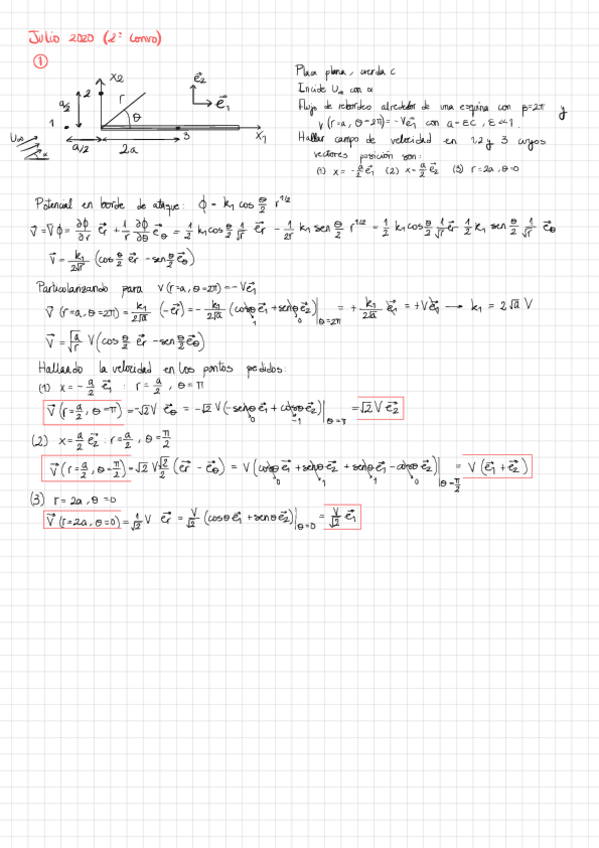 Julio 2020 (2º convo)
①
x₂
e⃗₂
e⃗₁
a/2
2
r
θ
1
3
x₁
U∞
α
a/2
2a
Placa plana, cuerda c
Incide U∞ con α
Flujo de rebordeo alrededor de una esquina con β=2π y
v(r=a, θ=2π)=-Ve⃗₁ con a=εc, ε≪1.
Hallar campo de velocidad en 1,2 y 3 cuyos
vectores posición son:
(1) x=-a/2 e⃗₁ (2) x=a/2 e⃗₂ (3) r=2a, θ=0
Potencial en borde de ataque: ϕ = k₁ cos θ/2 r^1/2
v⃗=∇ϕ = ∂ϕ/∂r e⃗r + 1/r ∂ϕ/∂θ e⃗θ = 1/2 k₁ cos θ/2 1/√r e⃗r - 1/2r k₁ sen θ/2 r^1/2 = 1/2 k₁ cos θ/2 1/√r e⃗r - 1/2 k₁ sen θ/2 1/√r e⃗θ
v⃗ = k₁/2√r (cos θ/2 e⃗r - sen θ/2 e⃗θ)
Particularizando para v(r=a, θ=2π)=-Ve⃗₁
v⃗(r=a, θ=2π) = k₁/2√a (-e⃗r) = - k₁/2√a (cosθ e⃗₁ + senθ e⃗₂)|θ=2π = + k₁/2√a e⃗₁ = +Ve⃗₁ → k₁ = 2√a V
v⃗ = √a/r V (cos θ/2 e⃗r - sen θ/2 e⃗θ)
Hallando la velocidad en los puntos pedidos:
(1) x=-a/2 e⃗₁ : r=a/2, θ=π
v⃗(r=a/2, θ=π) = -√2 V e⃗θ = -√2 V(-senθ e⃗₁ + cosθ e⃗₂)|θ=π = √2 V e⃗₂
(2) x=a/2 e⃗₂ : r=a/2, θ=π/2
v⃗(r=a/2, θ=π/2) = √2 V √2/2 (e⃗r - e⃗θ) = V(cosθ e⃗₁ + senθ e⃗₂ + senθ e⃗₁ - cosθ e⃗₂)|θ=π/2 = V(e⃗₁ + e⃗₂)
(3) r=2a, θ=0
v⃗(r=2a, θ=0) = 1/√2 V e⃗r = V/√2 (cosθ e⃗₁ + senθ e⃗₂)|θ=0 = V/√2 e⃗₁